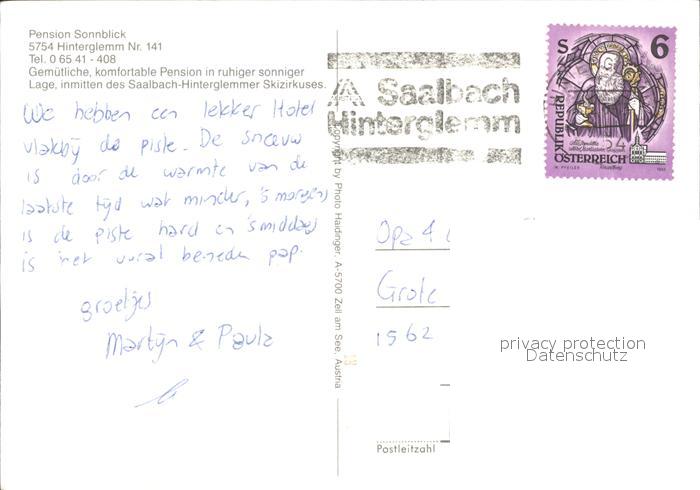 Pension Sonnblick
5754 Hinterglemm Nr. 141
Tel. 0 65 41 - 408
Gemütliche, komfortable Pension in ruhiger sonniger
Lage, inmitten des Saalbach-Hinterglemmer Skizirkuses.
We hebben een lekker Hotel
vlakbij de piste. De sneeuw
is door de warmte van de
laatste tijd wat minder, 's morgens
is de piste hard en 's middags
is het vooral beneden pap.
groetjes
Martijn & Paula
Copyright by Photo Haidinger, A-5700 Zell am See, Austria
Saalbach
Hinterglemm
S 6
REPUBLIK
ÖSTERREICH
Opa &
Grote
1562
privacy protection
Datenschutz
Postleitzahl